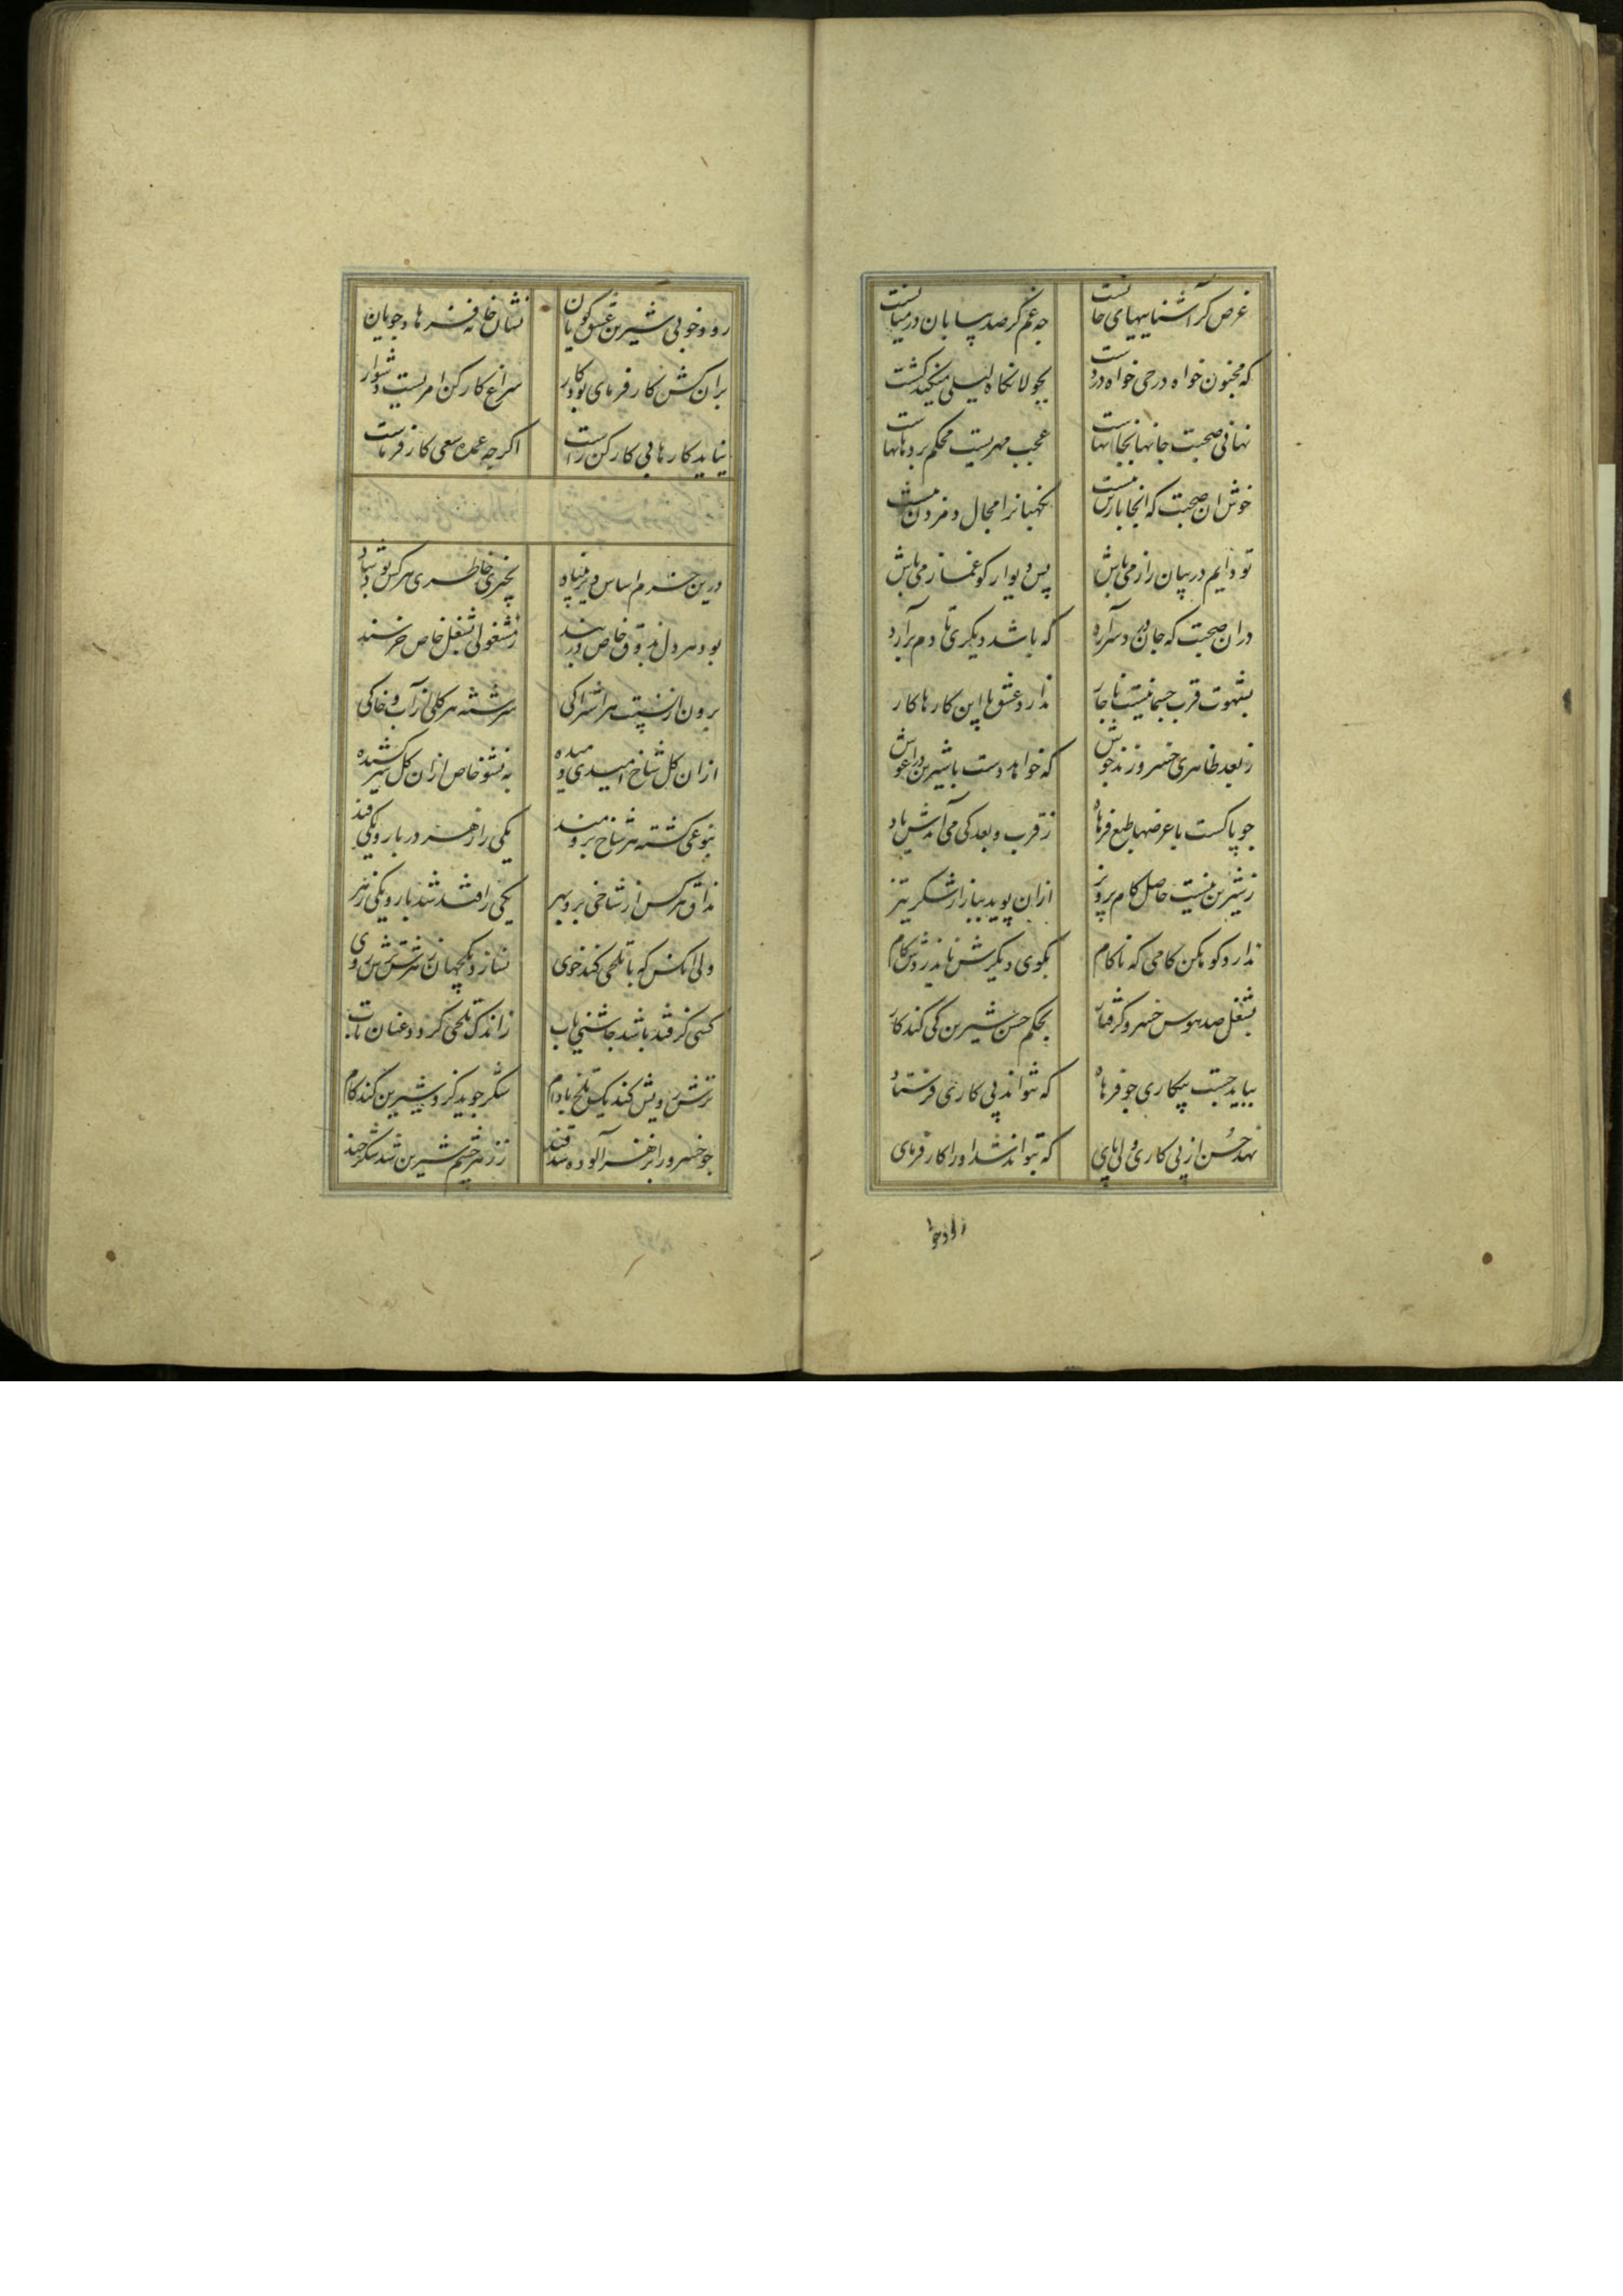 غرض کز آشناییهای جانست چه غم گر صد بیابان در میانست
که مجنون خواه در حی خواه در دشت بجولانکاه لیلی میکند کشت
نهانی صحبت جانها بجانها عجب مهریست محکم بر دهانها
خوش ان صحبت که انجا بار تن نیست نکهبانرا مجال دم زدن نیست
تو دایم در میان راز می باش پس دیوار کو غماز می باش
دران صحبت که جان در سر آرد که باشد دیکری تا دم برآرد
بشهوت قرب جسمانیست ناچار ندارد عشق با این کارها کار
ز بعد ظاهری خسرو زند جوش که خواهد دست با شیرین در آغوش
چو پاکست با غرضها طبع فرهاد ز قرب و بعد کی می آیدش یاد
ز شیرین نیست حاصل کام پرویز ازان پوید ببازار شکر تیز
ندارد کوهکن کامی که ناکام بکوی دیکرش باید زدن کام
بشغل صد هوس خسرو کرفتار بحکم حسن شیرین کی کند کار
بباید جست بیکاری چو فرهاد که بتواند پی کاری فرستاد
نهد حسن از پی کاری دلی پای که بتواند شد او را کارفرمای
رود خوبی شیرین عشق کویان نشان خانه فرهاد جویان
بران کش کارفرمایی بود کار سراغ کارکن امریست دشوار
نیاید کارها بی کارکن راست اکرچه عمده سعی کارفرماست
درین خرم اساس دیر بنیاد بچیزی خاطر هر کس بود شاد
بود هر دل بذوق خاص دربند ز مشغولی بشغل خاص خرسند
برون از نسبت هر اشتراکی سرشته هر کلی از آب و خاکی
ازان کل شاخ امیدی دمیده به نشو خاص ازان کل سر کشیده
بنوعی کشته هر شاخ برومند یکی را زهر در بار و یکی قند
مذاق هر کس از شاخی برد بهر یکی را قند شد بار و یکی زهر
ولی انکس که با تلخی کند خوی نسازد یکجهان زهرش ترش روی
کسی کز قند باشد چاشنی یاب ز اندک تلخی کردد عنان تاب
ترش رویش کند یک تلخ بادام شکر جوید کزو شیرین کند کام
چو خسرو را بزهر آلوده شد قند ز زهر چشم شیرین شد شکرخند